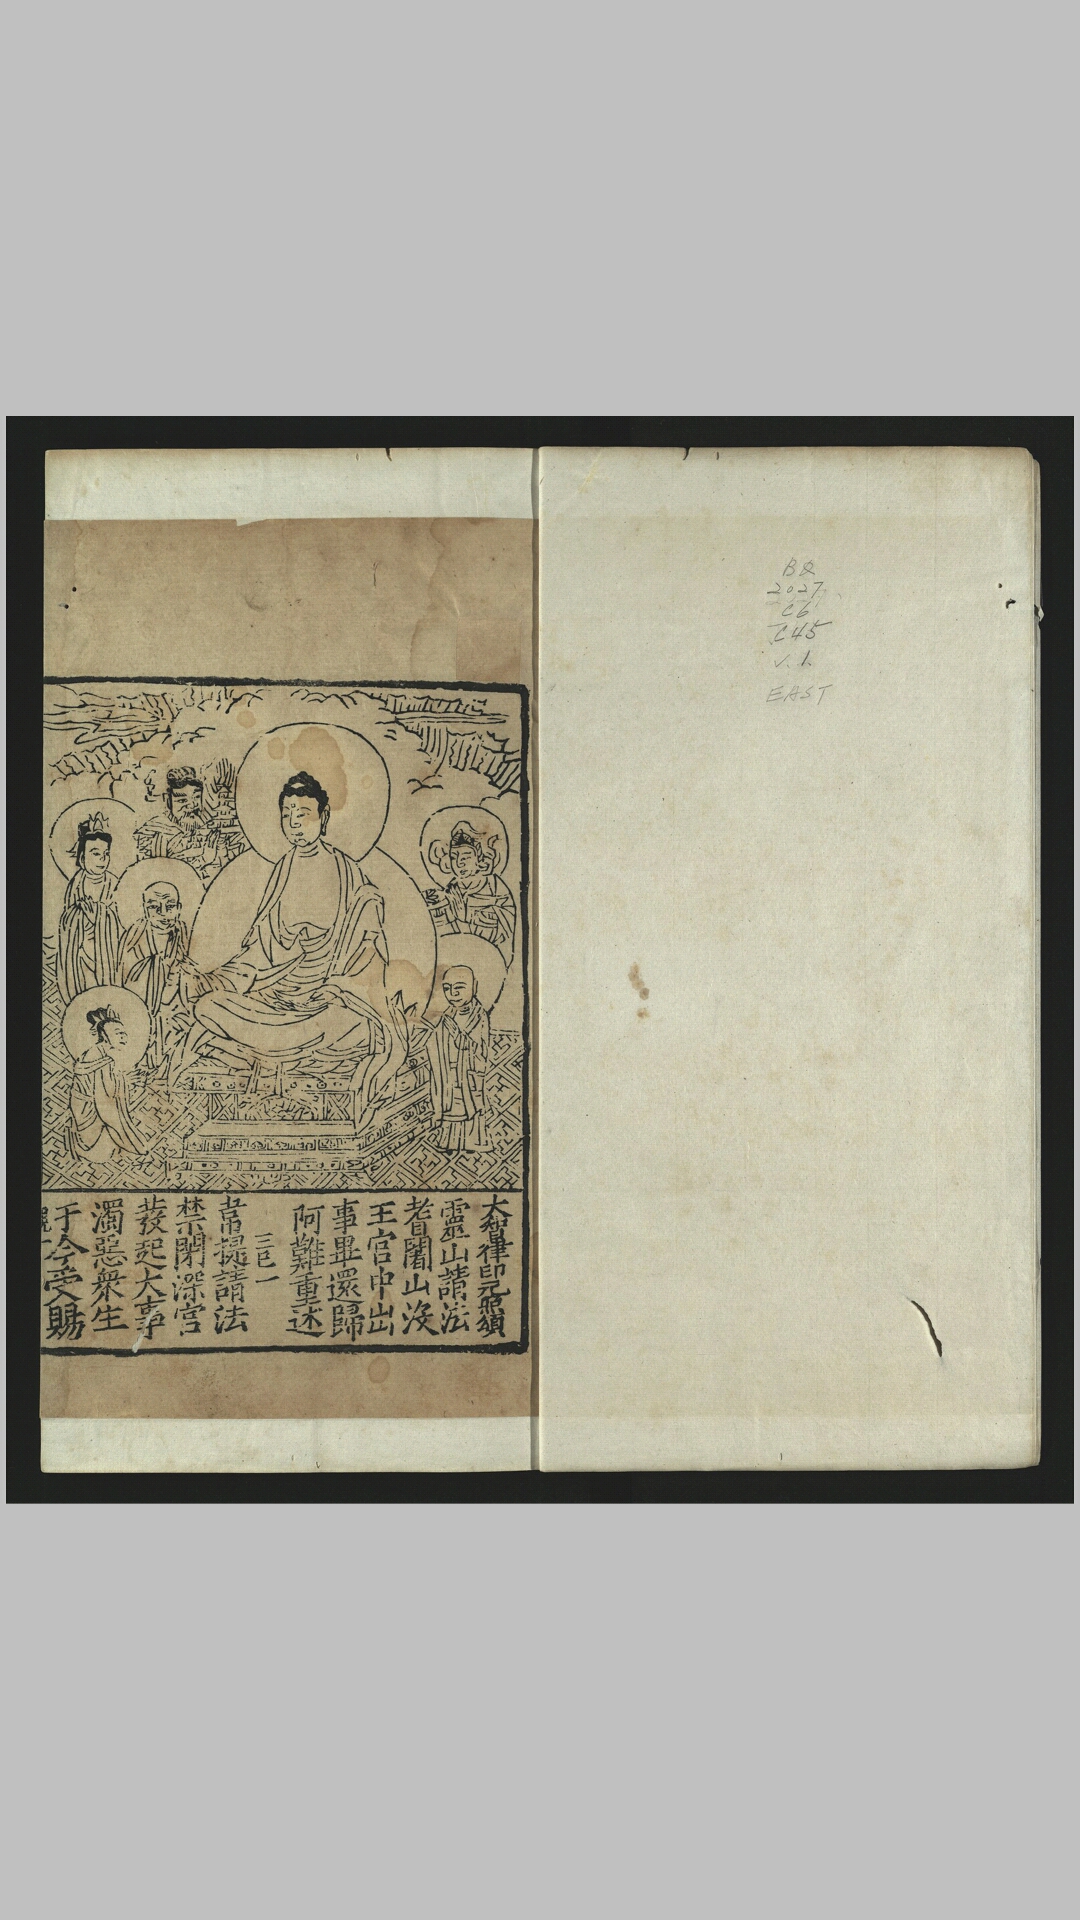 BQ
2027
C6
C45
v.1.
EAST
大智律師元照頌
靈山請法
耆闍山沒
王宮中出
事畢還歸
阿難重述
韋提請法
禁閉深宮
發起大事
濁惡衆生
于今受賜